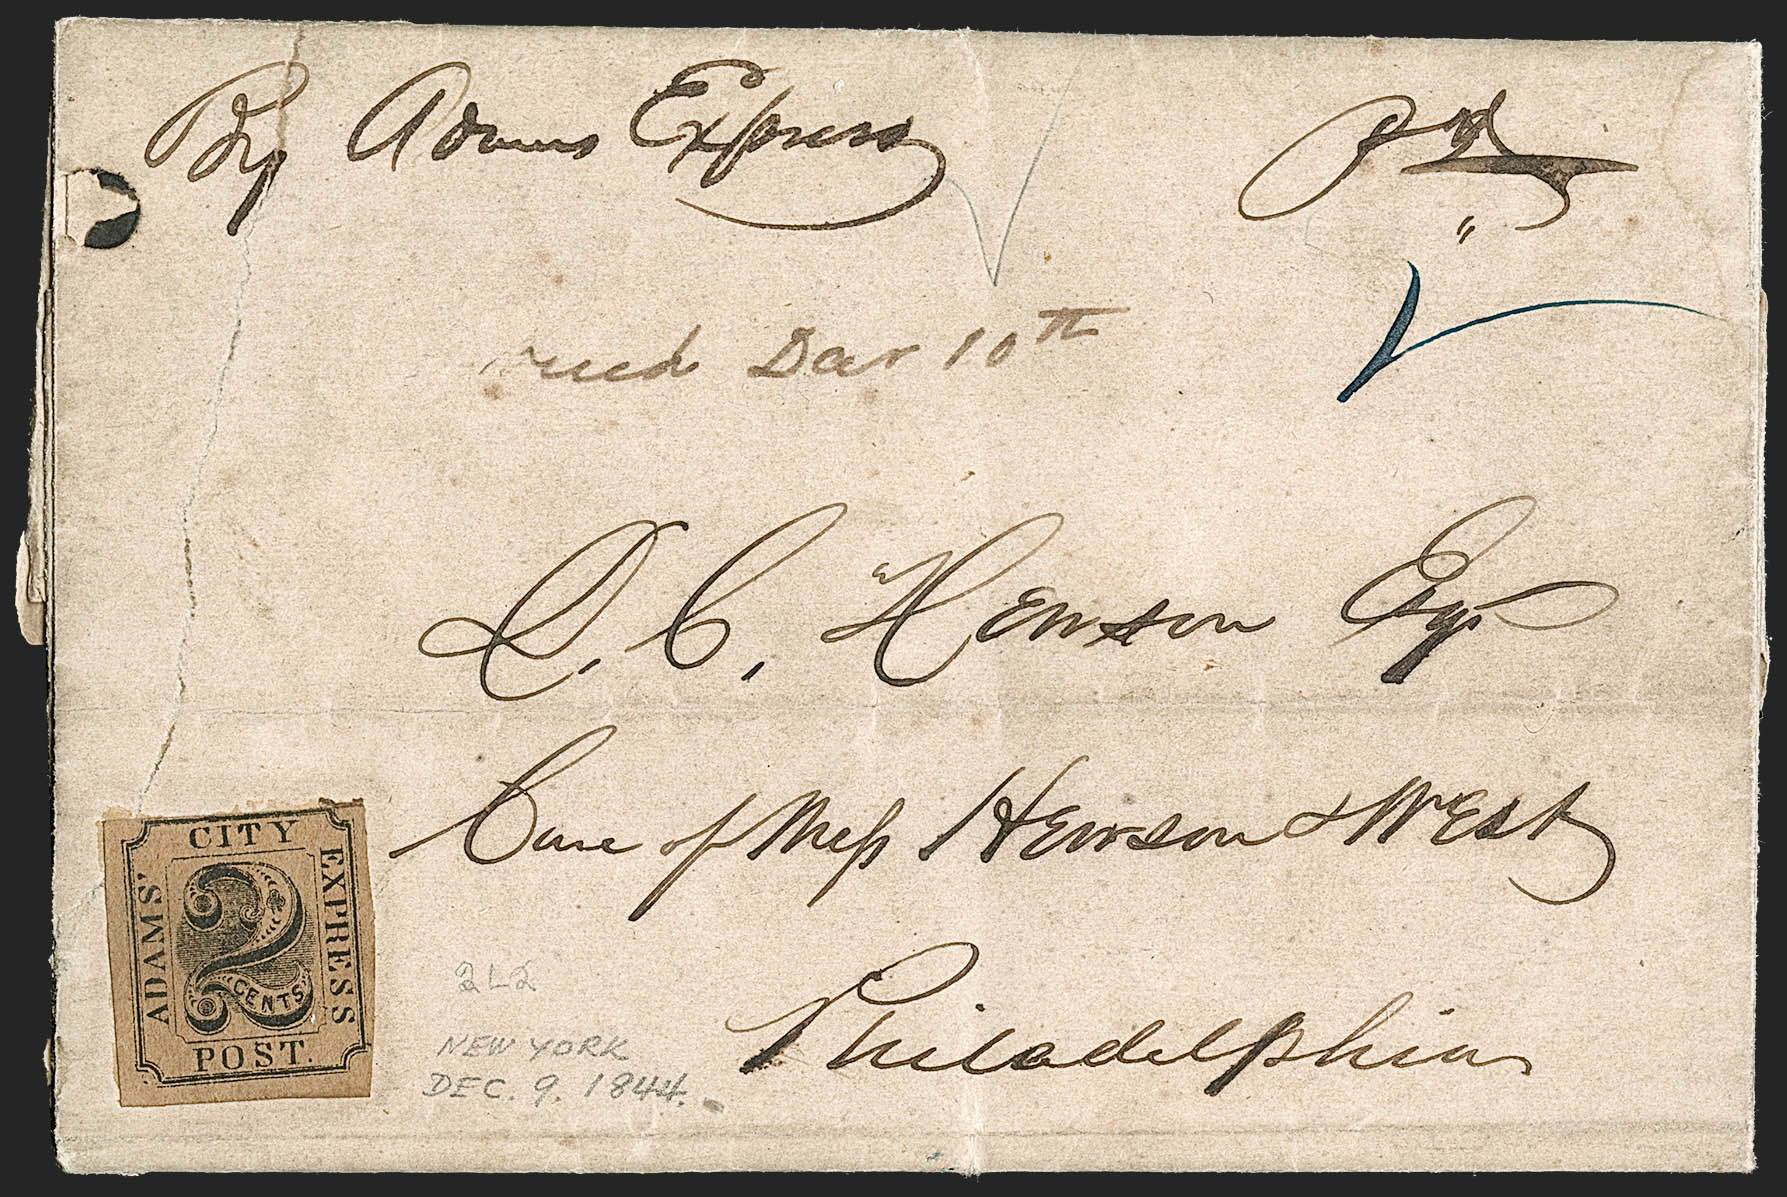 By Adams Express
pd
Dec 10th
D. C. Hewson Esqr
Care of Mess Hewson & West
Philadelphia
CITY
EXPRESS
ADAMS'
2
CENTS
POST.
2L2
NEW YORK
DEC. 9. 1844.